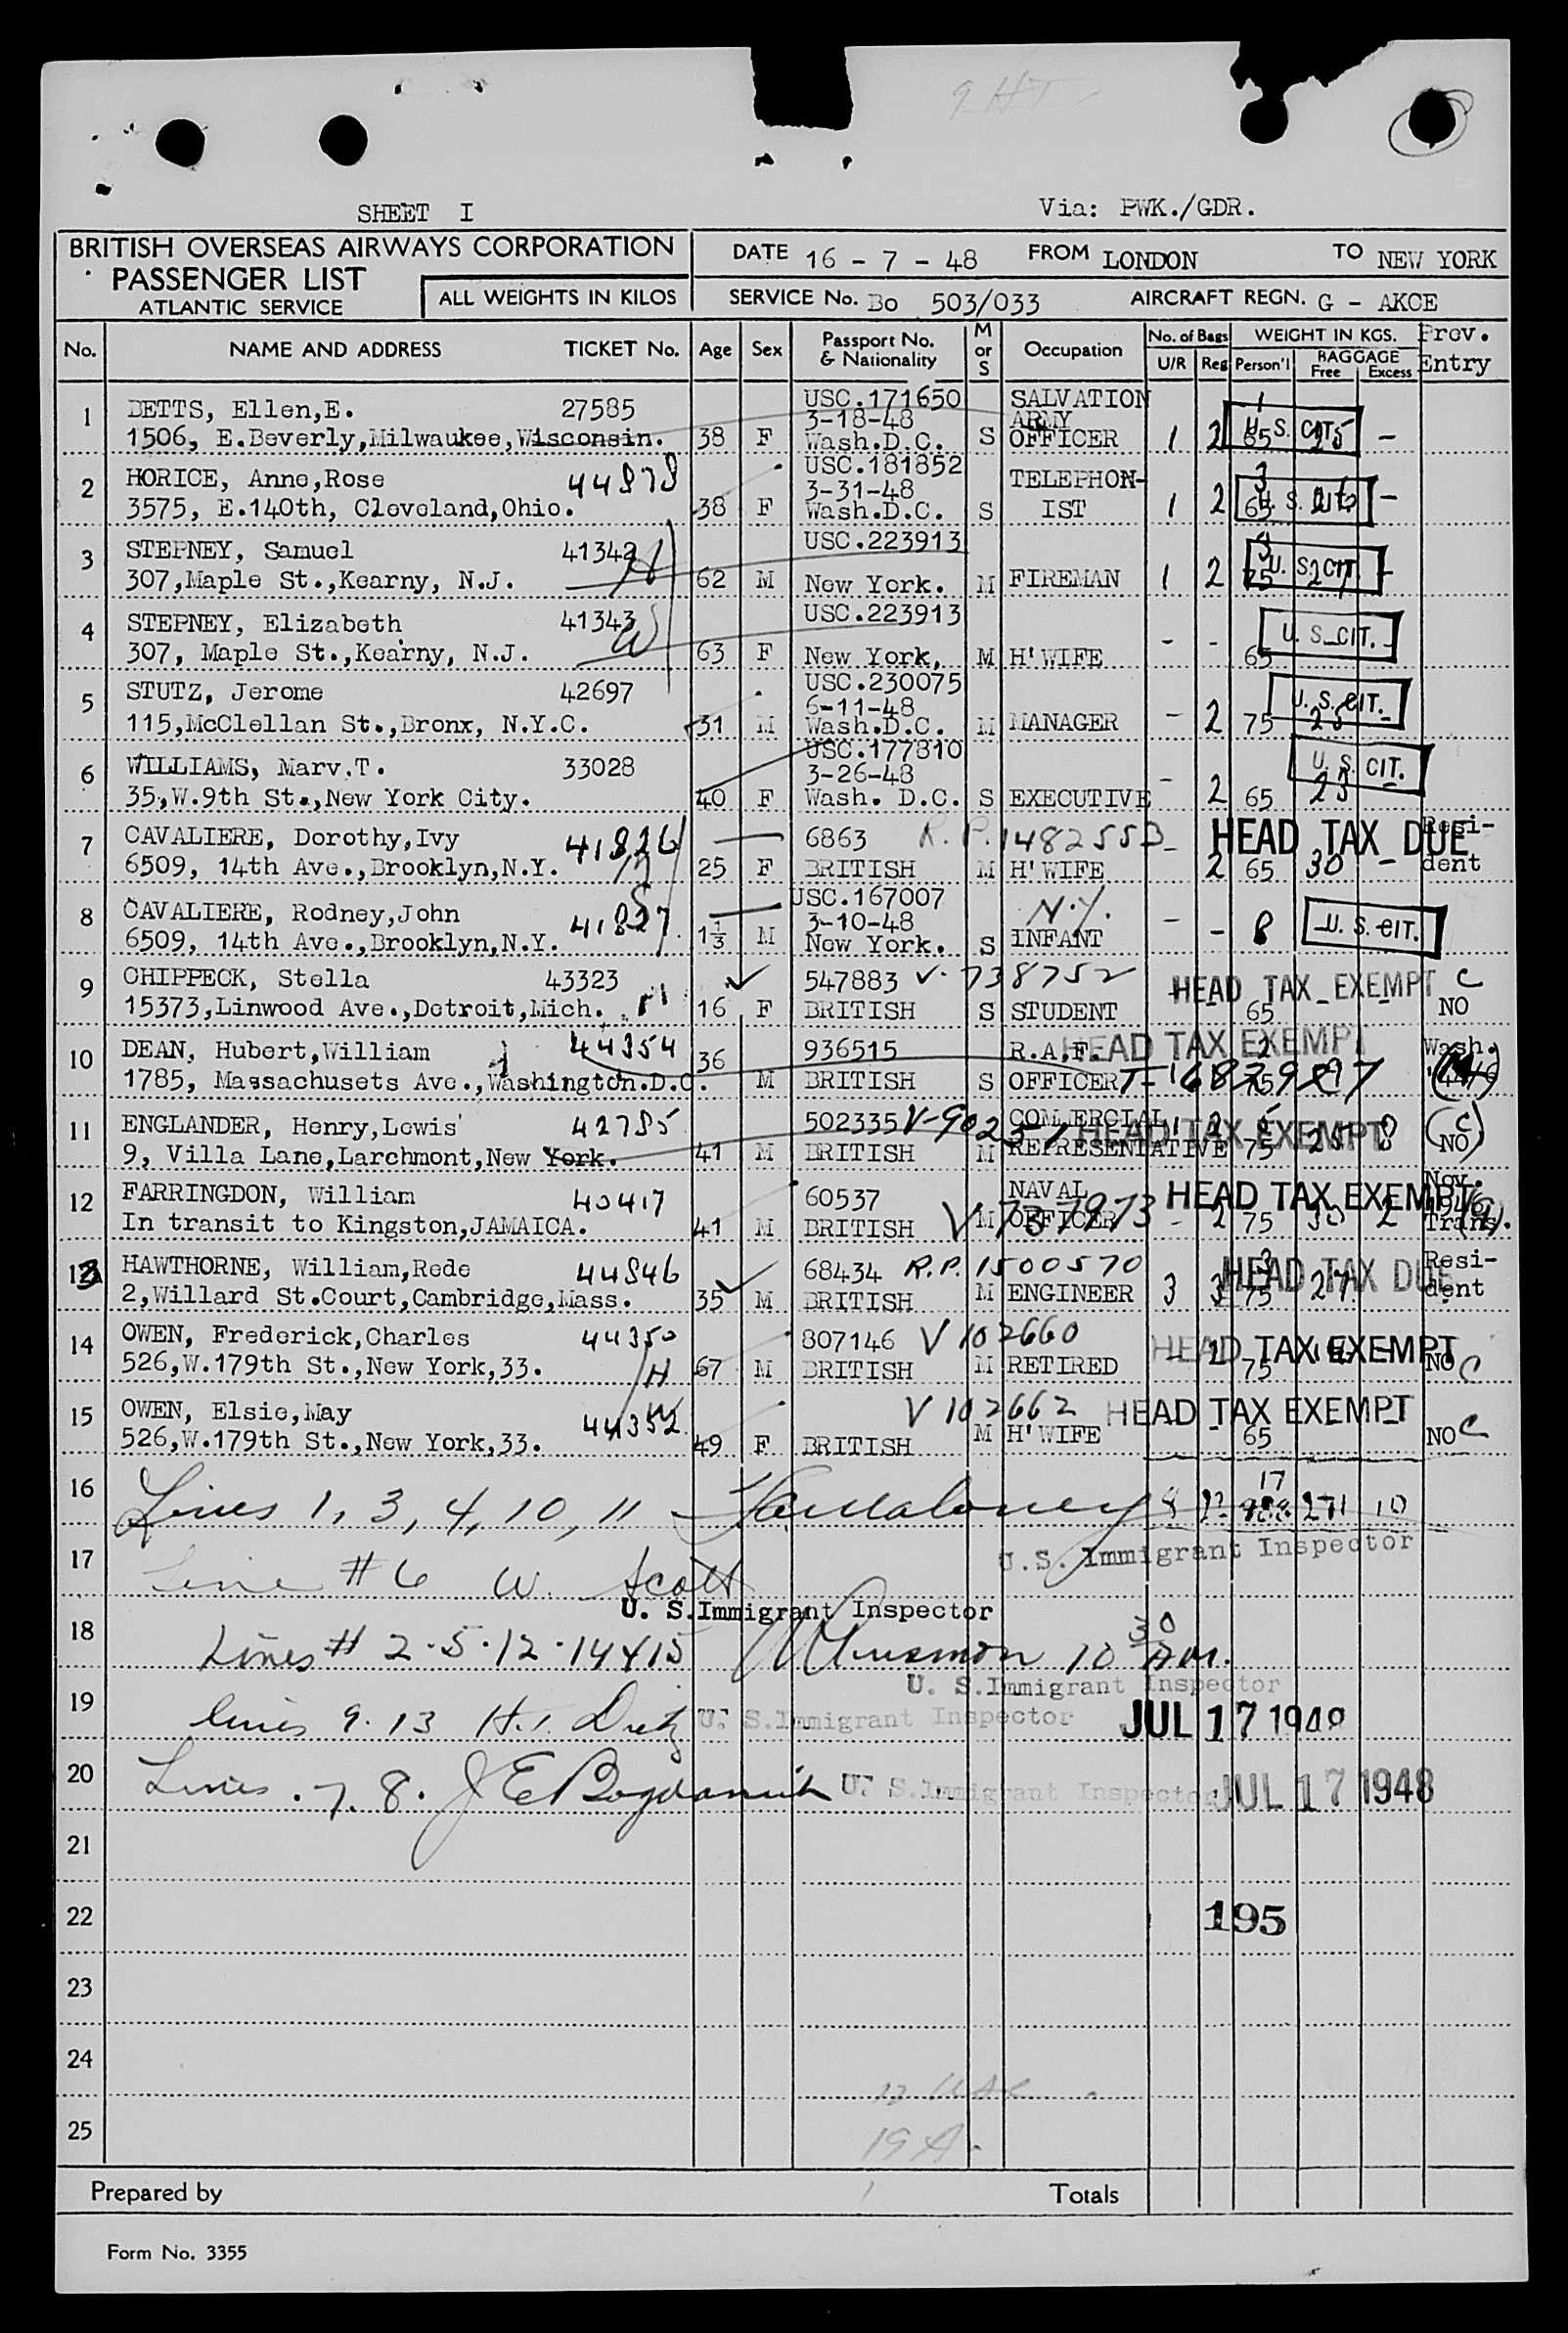 SHEET I
Via: PWK./GDR.
BRITISH OVERSEAS AIRWAYS CORPORATION
PASSENGER LIST
ATLANTIC SERVICE
ALL WEIGHTS IN KILOS
DATE 16 - 7 - 48 FROM LONDON TO NEW YORK
SERVICE No. Bo 503/033 AIRCRAFT REGN. G - AKCE
No. NAME AND ADDRESS TICKET No. Age Sex Passport No. & Nationality M or S Occupation No. of Bags U/R Reg WEIGHT IN KGS. Person'l BAGGAGE Free Excess Prev. Entry
1 BETTS, Ellen,E. 27585 USC.171650 SALVATION
3-18-48 ARMY
1506, E.Beverly,Milwaukee,Wisconsin. 38 F Wash.D.C. S OFFICER 1 2 65 U. S. CIT. 25 -
2 HORICE, Anne,Rose 44878 USC.181852 TELEPHON-
3-31-48
3575, E.140th, Cleveland,Ohio. 38 F Wash.D.C. S IST 1 2 65 U. S. CIT. 26 -
3 STEPNEY, Samuel 41342 USC.223913
307,Maple St.,Kearny, N.J. 62 M New York. M FIREMAN 1 2 75 U. S. CIT. 27 -
4 STEPNEY, Elizabeth 41343 USC.223913
307, Maple St.,Kearny, N.J. 63 F New York, M H'WIFE - - 65 U. S. CIT. -
5 STUTZ, Jerome 42697 USC.230075
6-11-48
115,McClellan St.,Bronx, N.Y.C. 31 M Wash.D.C. M MANAGER - 2 75 U. S. CIT. -
6 WILLIAMS, Marv.T. 33028 USC.177810
3-26-48
35,W.9th St.,New York City. 40 F Wash. D.C. S EXECUTIVE - 2 65 U. S. CIT. -
7 CAVALIERE, Dorothy,Ivy 41826 6863 R.P.1482553 HEAD TAX DUE Resi-
6509, 14th Ave.,Brooklyn,N.Y. 25 F BRITISH M H'WIFE - 2 65 30 - dent
8 CAVALIERE, Rodney,John 41827 USC.167007 N.Y.
3-10-48
6509, 14th Ave.,Brooklyn,N.Y. 1⅓ M New York. S INFANT - - 8 U. S. CIT.
9 CHIPPECK, Stella 43323 547883 V-738752 HEAD TAX EXEMPT C
15373,Linwood Ave.,Detroit,Mich. 16 F BRITISH S STUDENT 65 NO
10 DEAN, Hubert,William 44354 36 936515 R.A.F. HEAD TAX EXEMPT Wash.
1785, Massachusets Ave.,Washington.D.C. M BRITISH S OFFICER 75
11 ENGLANDER, Henry,Lewis 42785 502335 COMMERCIAL HEAD TAX EXEMPT (C)
9, Villa Lane,Larchmont,New York. 41 M BRITISH M REPRESENTATIVE 75 25 8 NO
12 FARRINGDON, William 40417 60537 NAVAL HEAD TAX EXEMPT Nov. 1946
In transit to Kingston,JAMAICA. 41 M BRITISH M OFFICER - 2 75 30 2 Trans.
13 HAWTHORNE, William,Rede 44846 68434 R.P. 1500570 HEAD TAX DUE Resi-
2,Willard St.Court,Cambridge,Mass. 35 M BRITISH M ENGINEER 3 3 75 27 dent
14 OWEN, Frederick,Charles 44350 807146 V 102660 HEAD TAX EXEMPT
526,W.179th St.,New York,33. 67 M BRITISH M RETIRED 75 NO C
15 OWEN, Elsie,May 44352 V 102662 HEAD TAX EXEMPT
526,W.179th St.,New York,33. 49 F BRITISH M H'WIFE - 65 NO C
16 Lines 1, 3, 4, 10, 11 17 271 10
U.S. Immigrant Inspector
17 Line # 6 W. Scott
U. S.Immigrant Inspector
18 Lines # 2·5·12·14 & 15 10 30 A.M.
U. S.Immigrant Inspector
19 lines 9. 13 H.J. Dietz U. S.Immigrant Inspector JUL 17 1948
20 Lines . 7. 8. U. S.Immigrant Inspector JUL 17 1948
21
22 195
23
24
25 19 A.
Prepared by Totals
Form No. 3355